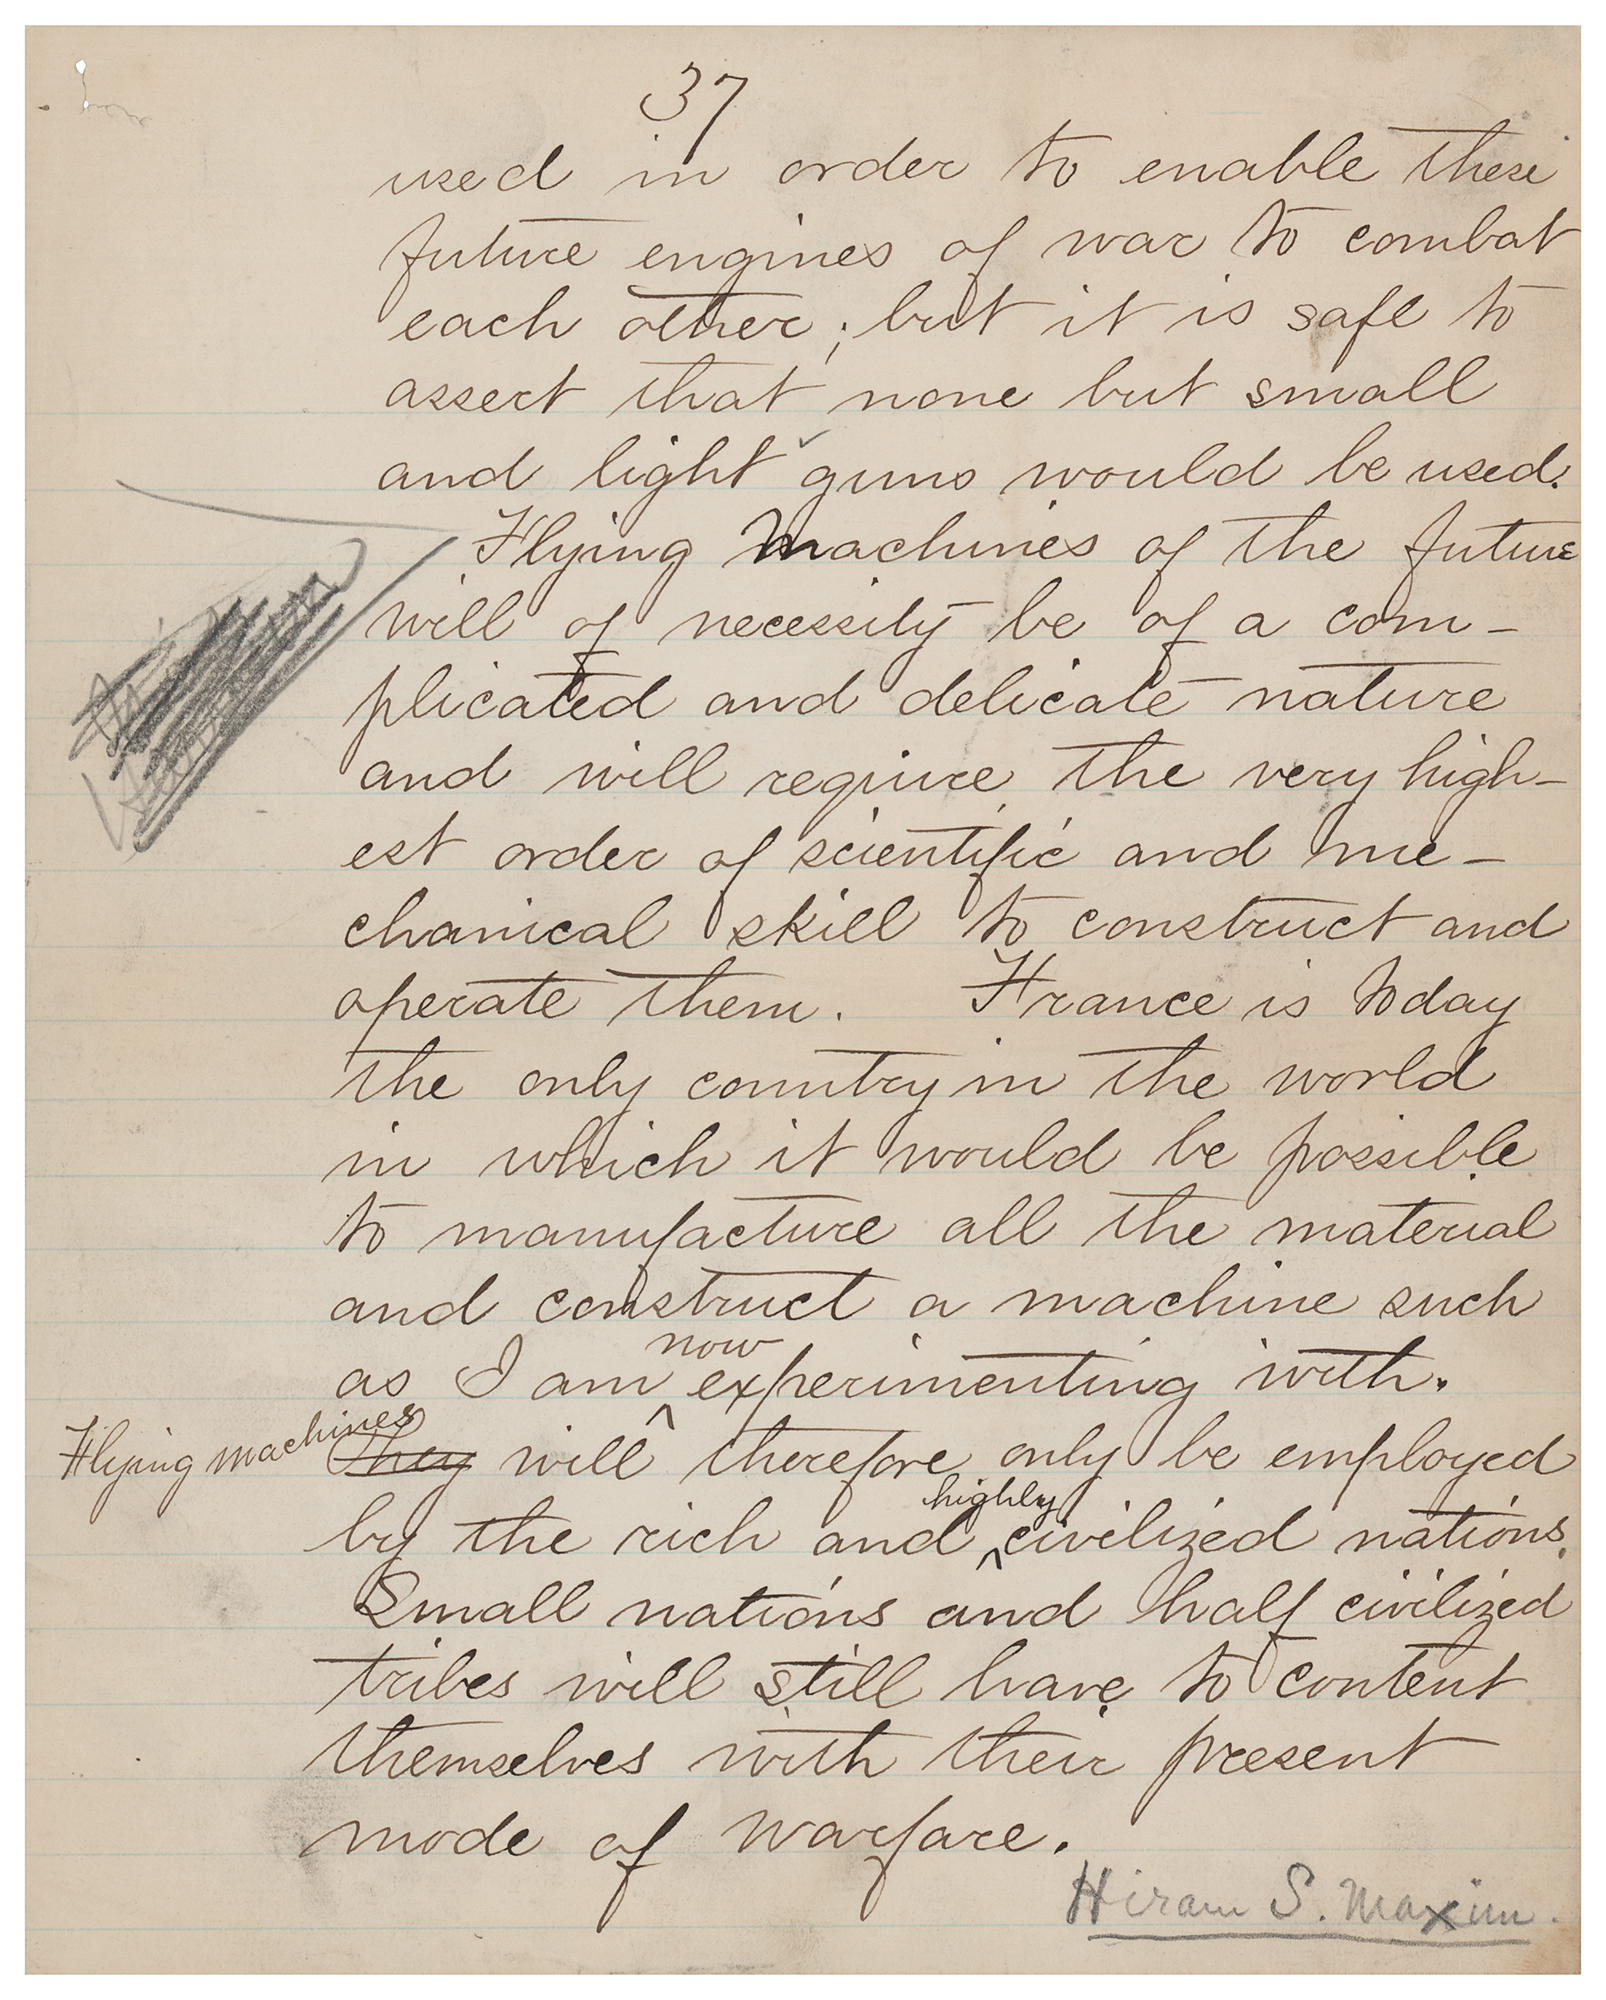 37
used in order to enable these
future engines of war to combat
each other; but it is safe to
assert that none but small
and light guns would be used.
Flying Machines of the future
will of necessity be of a com-
plicated and delicate nature
and will require the very high-
est order of scientific and me-
chanical skill to construct and
operate them. France is today
the only country in the world
in which it would be possible
to manufacture all the material
and construct a machine such
now
as I am ^ experimenting with.
Flying machines
They will therefore only be employed
highly
by the rich and ^ civilized nations.
Small nations and half civilized
tribes will still have to content
themselves with their present
mode of warfare.
Hiram S. Maxim.